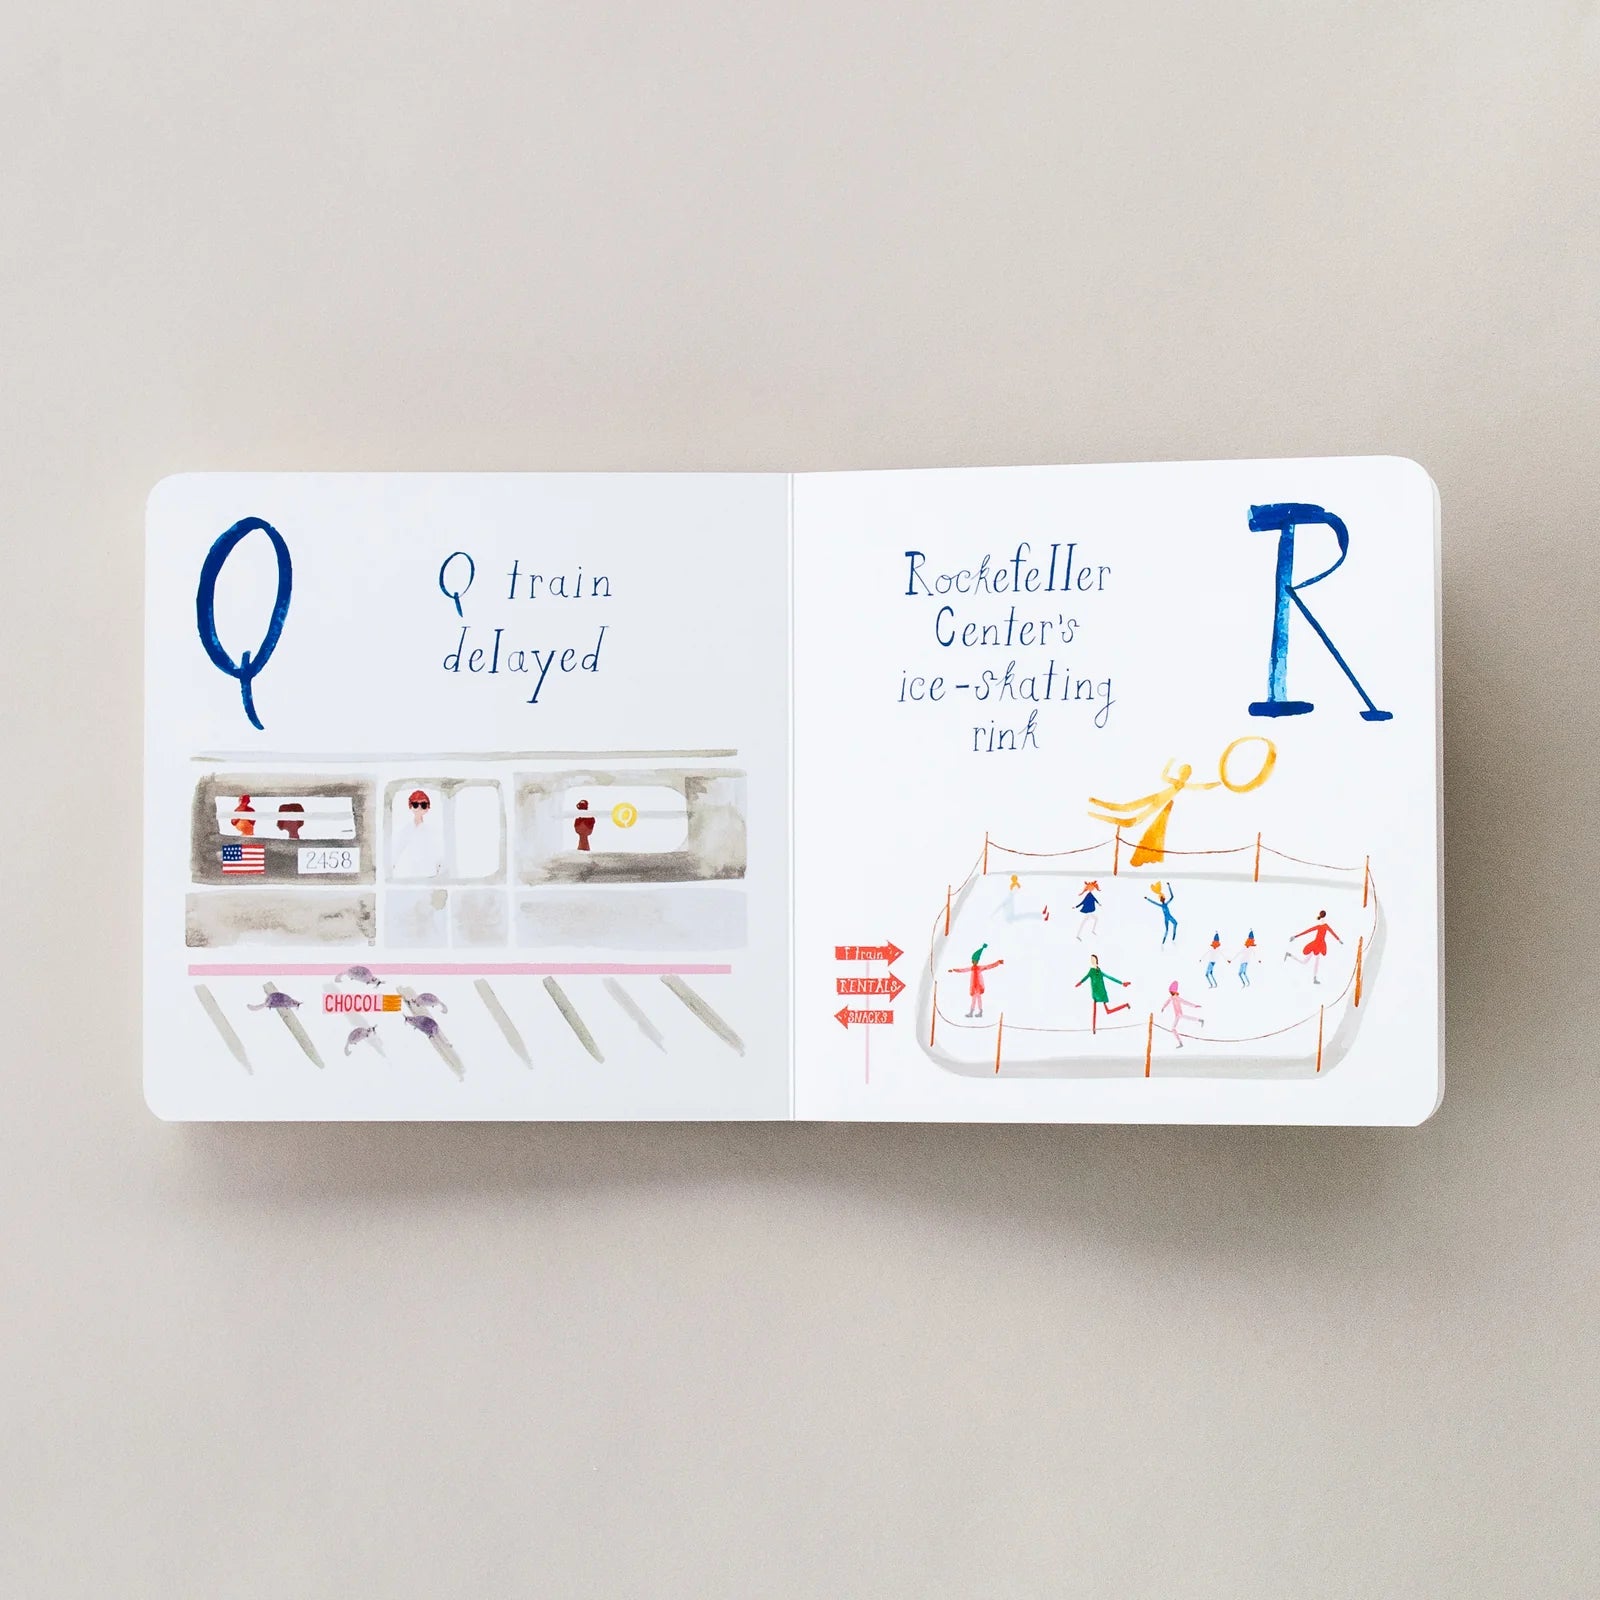 Q
Q train
delayed
2458
Q
CHOCOL
Rockefeller
Center's
ice-skating
rink
R
F train
RENTALS
SNACKS